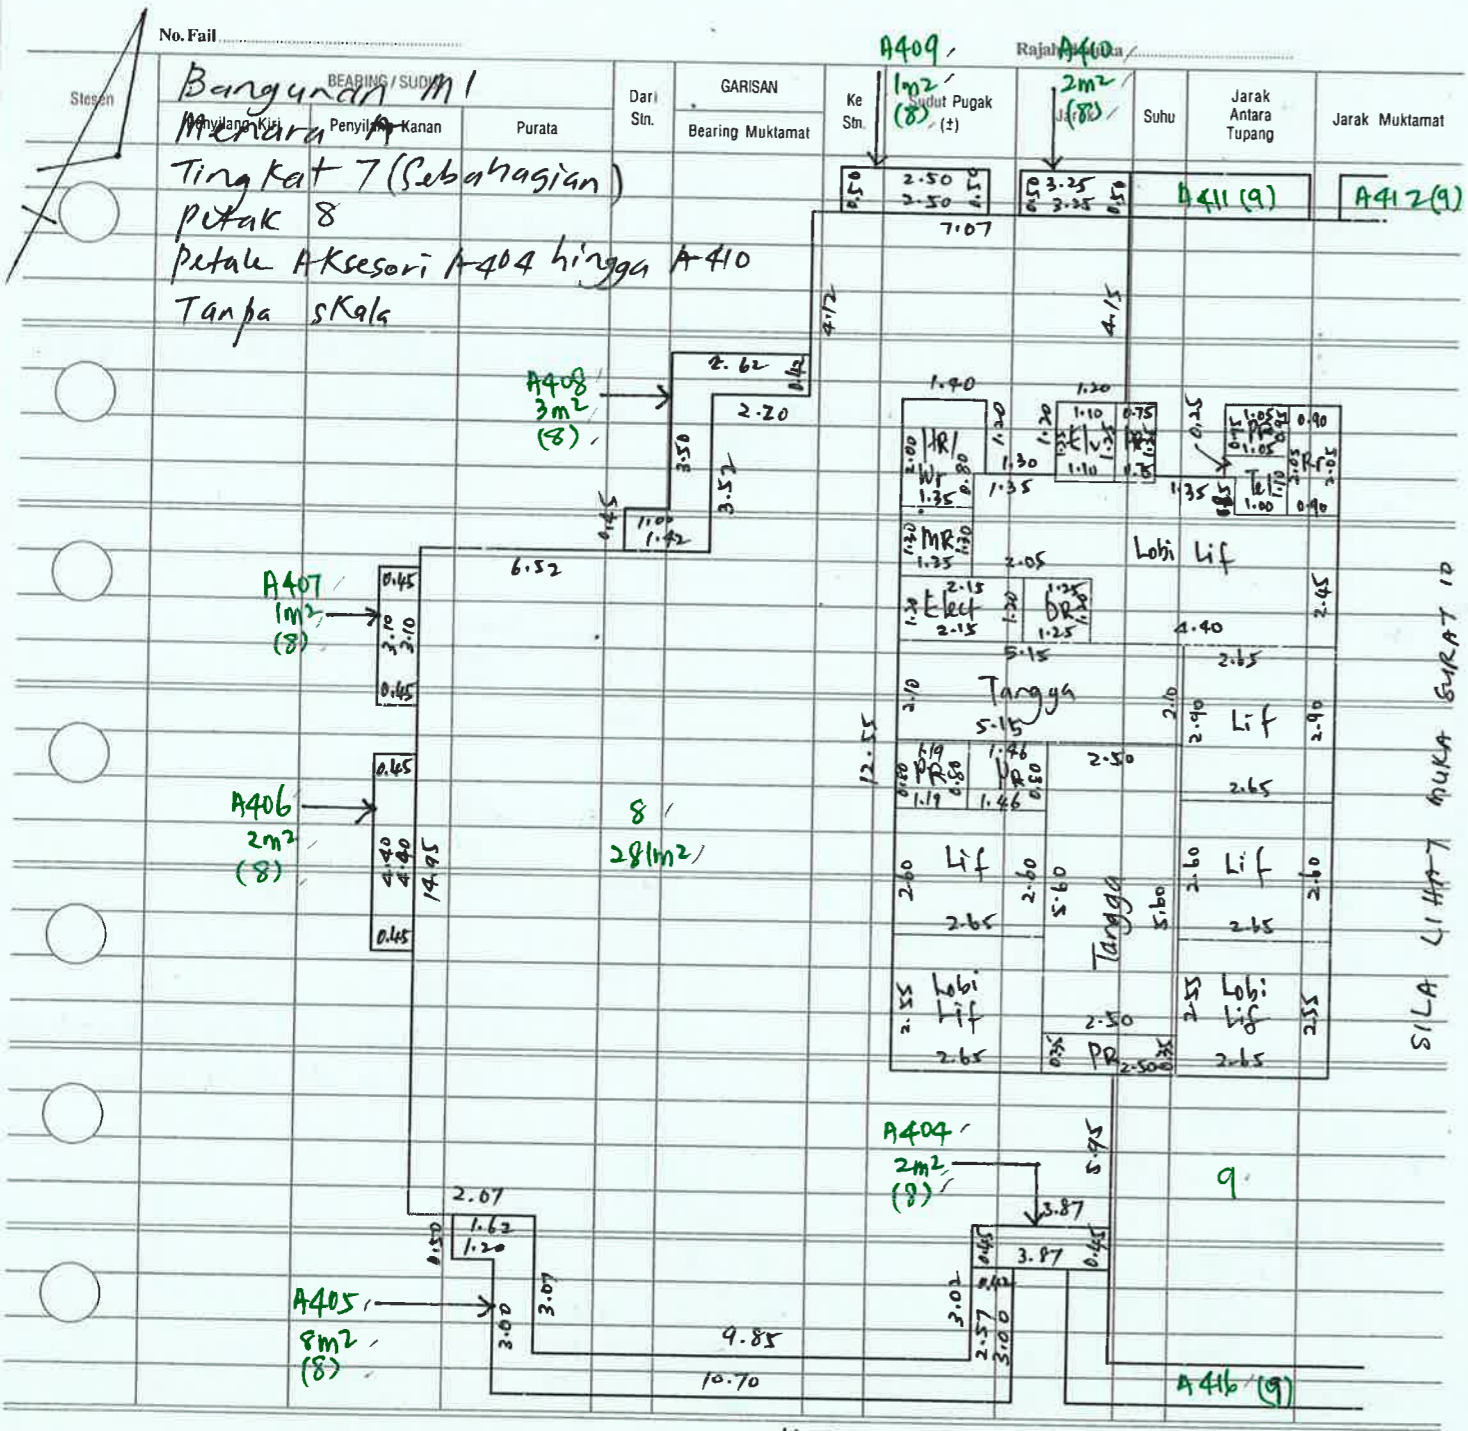 No. Fail
Stesen
BEARING / SUDUT
Penyilang Kiri
Penyilang Kanan
Purata
Dari Stn.
GARISAN
Bearing Muktamat
Ke Stn.
Sudut Pugak (±)
Suhu
Jarak Antara Tupang
Jarak Muktamat
Bangunan M1
Menara A
Tingkat 7 (Sebahagian)
Petak 8
Petak Aksesori A404 hingga A410
Tanpa skala
A409
1m2
(8)
A410
2m2
(8)
0.50 2.50 0.50
2.50
0.50 3.25 0.50
3.25
A411 (9)
A412 (9)
7.07
4.12
4.15
A408
3m2
(8)
2.62 0.42
2.20
3.50
3.52
0.45
1.00
1.42
6.52
A407
1m2
(8)
0.45
3.10
3.10
0.45
A406
2m2
(8)
0.45
4.40
4.40
14.95
0.45
8
281m2
12.55
1.40
1.20
2.00 HR/ 1.20 1.20 1.10 0.75
Wr 0.80 1.30 1.10 0.75
1.35 1.35
0.25
1.05 0.90
0.95
1.05
2.05 2.05
1.35 Tel 1.10
1.00 0.90
1.30 MR 1.30
1.35
2.05
Lobi Lif
2.15 1.25
1.20 Elect 1.20 DR
2.15 1.25
2.45
4.40
5.15
2.65
2.10 Tangga 2.10
5.15
2.90 Lif 2.90
2.65
1.19 1.46
0.80 PR 0.80 0.80
1.19 1.46
2.50
2.60 Lif 2.60
2.65
5.60 Tangga 5.60
2.60 Lif 2.60
2.65
2.55 Lobi Lif
2.65
2.50
PR 2.50
2.55 Lobi Lif 2.55
2.65
SILA LIHAT MUKA SURAT 10
A404
2m2
(8)
5.95
9
3.87
0.45 3.87 0.45
0.42
3.02
2.57
3.00
2.07
0.50 1.62
1.20
3.07
3.00
A405
8m2
(8)
9.85
10.70
A416 (9)